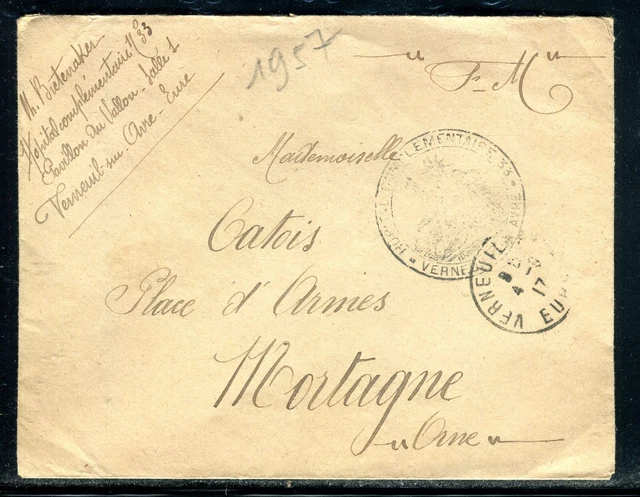 M. Bretenaker
Hôpital complémentaire N° 33
Pavillon du Vallon - Salle 1
Verneuil-sur-Avre - Eure
1957
" F-M "
Mademoiselle
Catois
Place d'Armes
Mortagne
" Orne "
HOPITAL COMPLEMENTAIRE 33
VERNEUIL AVRE
VERNEUIL
4 -8
17
EURE